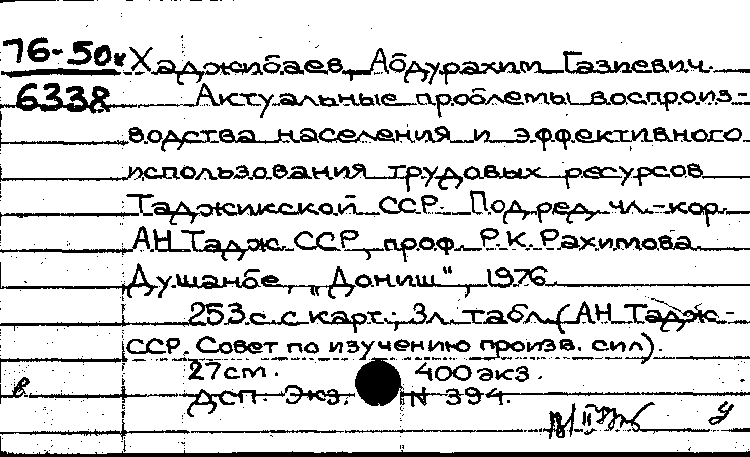 76-50к Хаджибаев, Абдурахим Газиевич.
6338 Актуальные проблемы воспроиз-
водства населения и эффективного
использования трудовых ресурсов
Таджикской ССР. Под ред. чл.-кор.
АН Тадж. ССР, проф. Р.К. Рахимова.
Душанбе, „Дониш", 1976.
253 с. с карт.; 3 л. табл. (АН Тадж-
ССР. Совет по изучению произв. сил).
27 cm. 400 экз.
в ДСП. Экз. N 394.
У